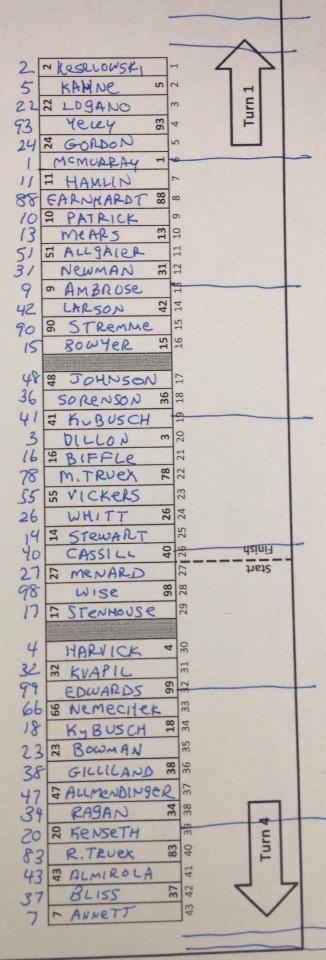 2 2 KESELOWSKI 1
5 KAHNE 5 2
22 22 LOGANO 3
93 YELEY 93 4
24 24 GORDON 5
1 MCMURRAY 1 6
11 11 HAMLIN 7
88 EARNHARDT 88 8
10 10 PATRICK 9
13 MEARS 13 10
51 51 ALLGAIER 11
31 NEWMAN 31 12
9 9 AMBROSE 13
42 LARSON 42 14
90 90 STREMME 15
15 BOWYER 15 16
48 48 JOHNSON 17
36 SORENSON 36 18
41 41 KuBUSCH 19
3 DILLON 3 20
16 16 BIFFLE 21
78 M.TRUEX 78 22
55 55 VICKERS 23
26 WHITT 26 24
14 14 STEWART 25
40 CASSILL 40 26
27 27 MENARD 27
98 WISE 98 28
17 17 STENHOUSE 29
4 HARVICK 4 30
32 32 KVAPIL 31
99 EDWARDS 99 32
66 66 NEMECHEK 33
18 KyBUSCH 18 34
23 23 BOWMAN 35
38 GILLILAND 38 36
47 47 ALLMENDINGER 37
34 RAGAN 34 38
20 20 KENSETH 39
83 R.TRUEX 83 40
43 43 ALMIROLA 41
37 BLISS 37 42
7 7 ANNETT 43
Turn 1
Finish
Start
Turn 4